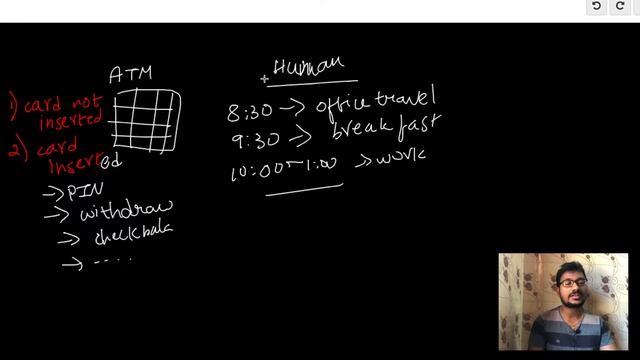 ATM
1) card not
inserted
2) card
Inserted
-> PIN
-> withdraw
-> checkbala
-> .....
Human
8:30 -> office travel
9:30 -> breakfast
10:00~1:00 -> work